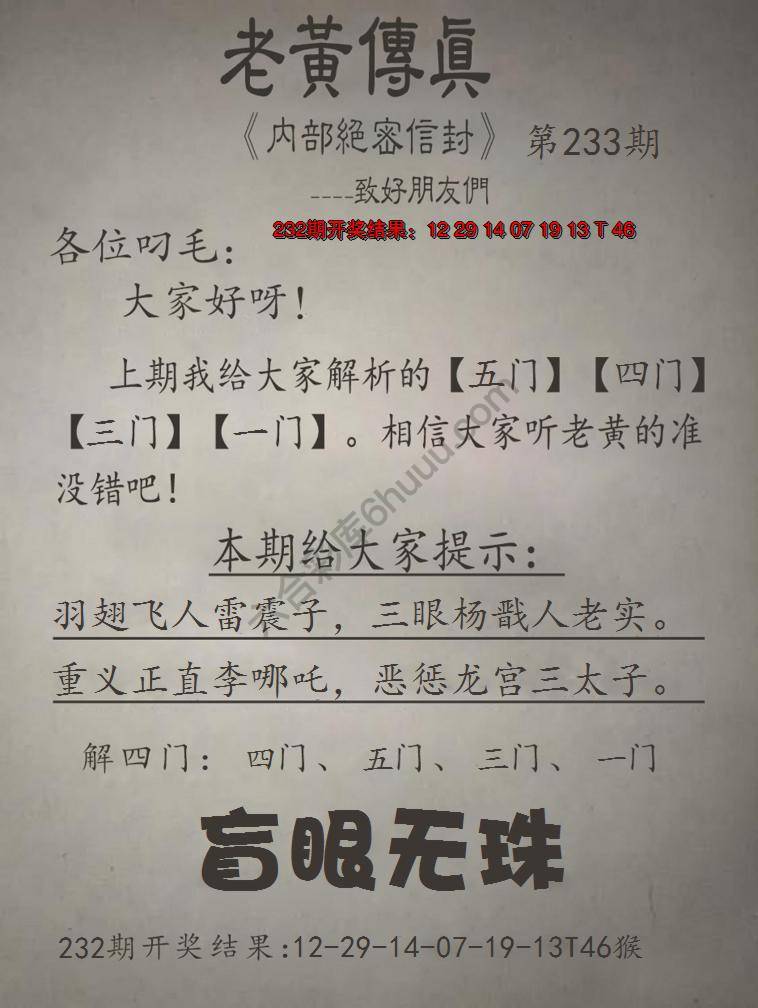 老黃傳眞
《内部絕密信封》 第233期
----致好朋友們
232期开奖结果：12 29 14 07 19 13 T 46
各位叼毛：
大家好呀！
上期我给大家解析的【五门】【四门】
【三门】【一门】。相信大家听老黄的准
没错吧！
本期给大家提示：
羽翅飞人雷震子，三眼杨戬人老实。
重义正直李哪吒，恶惩龙宫三太子。
解四门： 四门、 五门、 三门、 一门
盲眼无珠
232期开奖结果:12-29-14-07-19-13T46猴
六合彩库6huuu.com